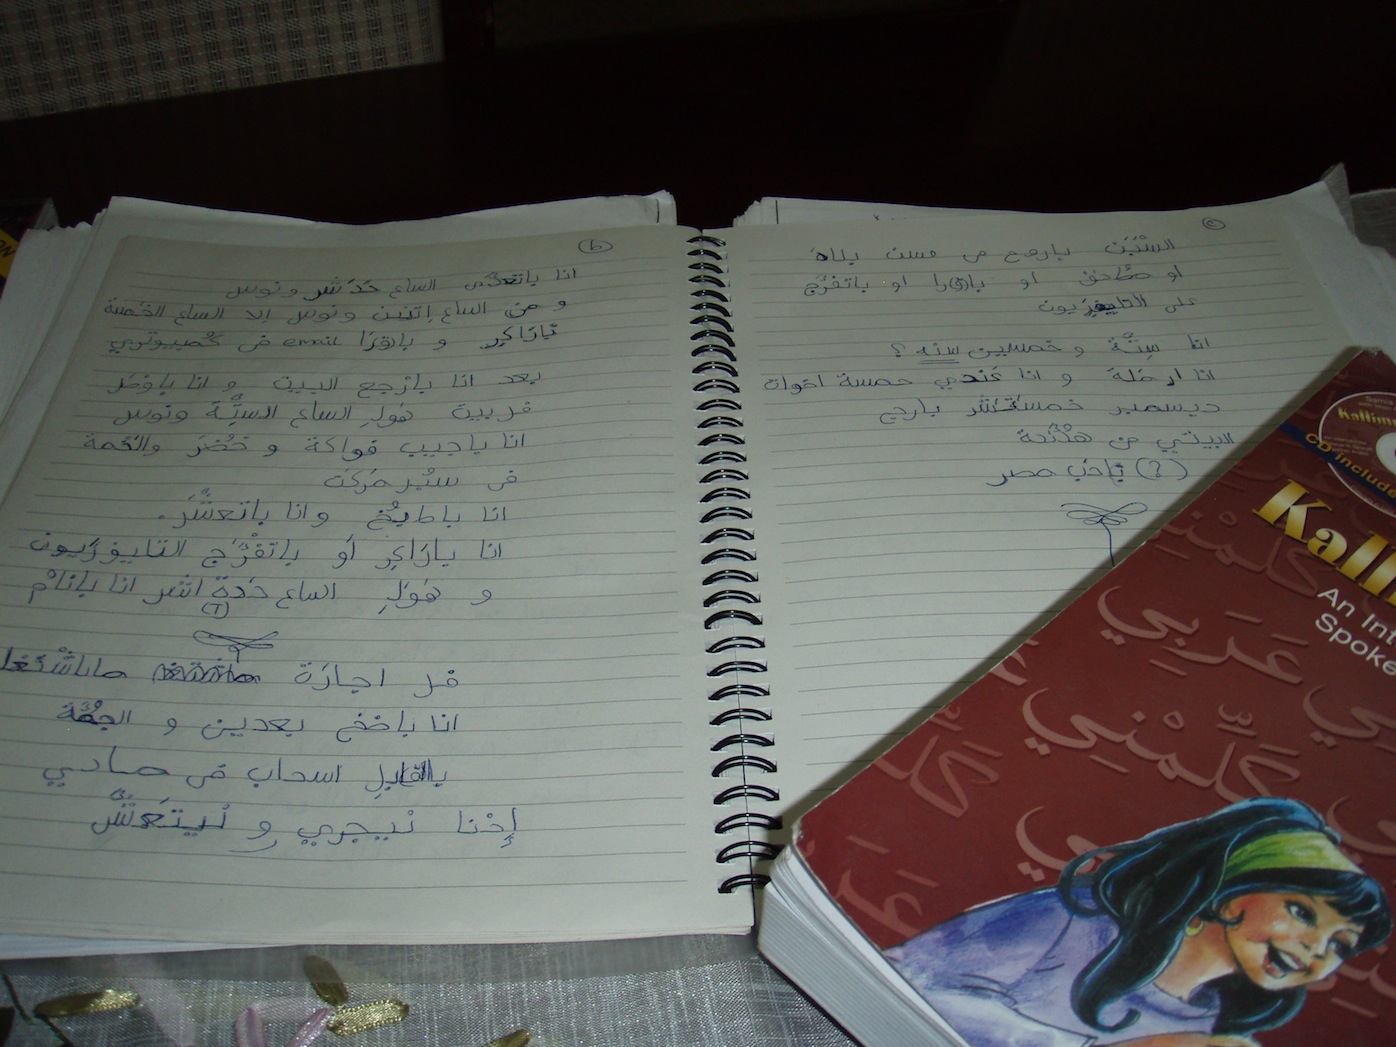 b
انا باتعشى الساع حَدَشر ونوس
و من الساع اتنين ونوس الا الساع الخَمسة
بَازَاكِر و باقرَا email فى كُمبيوتري
بعد انا بازجع البيت و انا باوْصَل
فى بيت هَوَلِ الساع السِتَّة ونوس
انا باجيب فواكة و خُضرَ والَحمة
فى سُبْر مَركَت
انا باطبُخ وانا باتعشَّىَ.
انا بازاكِر اَو باتفْرَّج التليفزيون
و هَوَلِ الساع حَدةْ اشَر انا بانَامْ
(T)
فى اجازَة ماباشْتَغَل
انا باخخ بعدين و الجُمْعَة
بالقابِل اسحاب فى مادي
إحْنا نيجري و نيتعَشَّى
c
السَّبَت بارجع من
او او او باتفرَّج
على التليفزيون
انا سِتَّة و خمسين سنه ؟
انا ارمَلة و انا عَندي خمسة اخوات
ديسمبر خمستَعْشَر بارجع
البيتي من
(?) بَاحَب مصر
Kalli
An Int
Spoke
Kallimn
CD included
كَلِّمْني عَرَبي